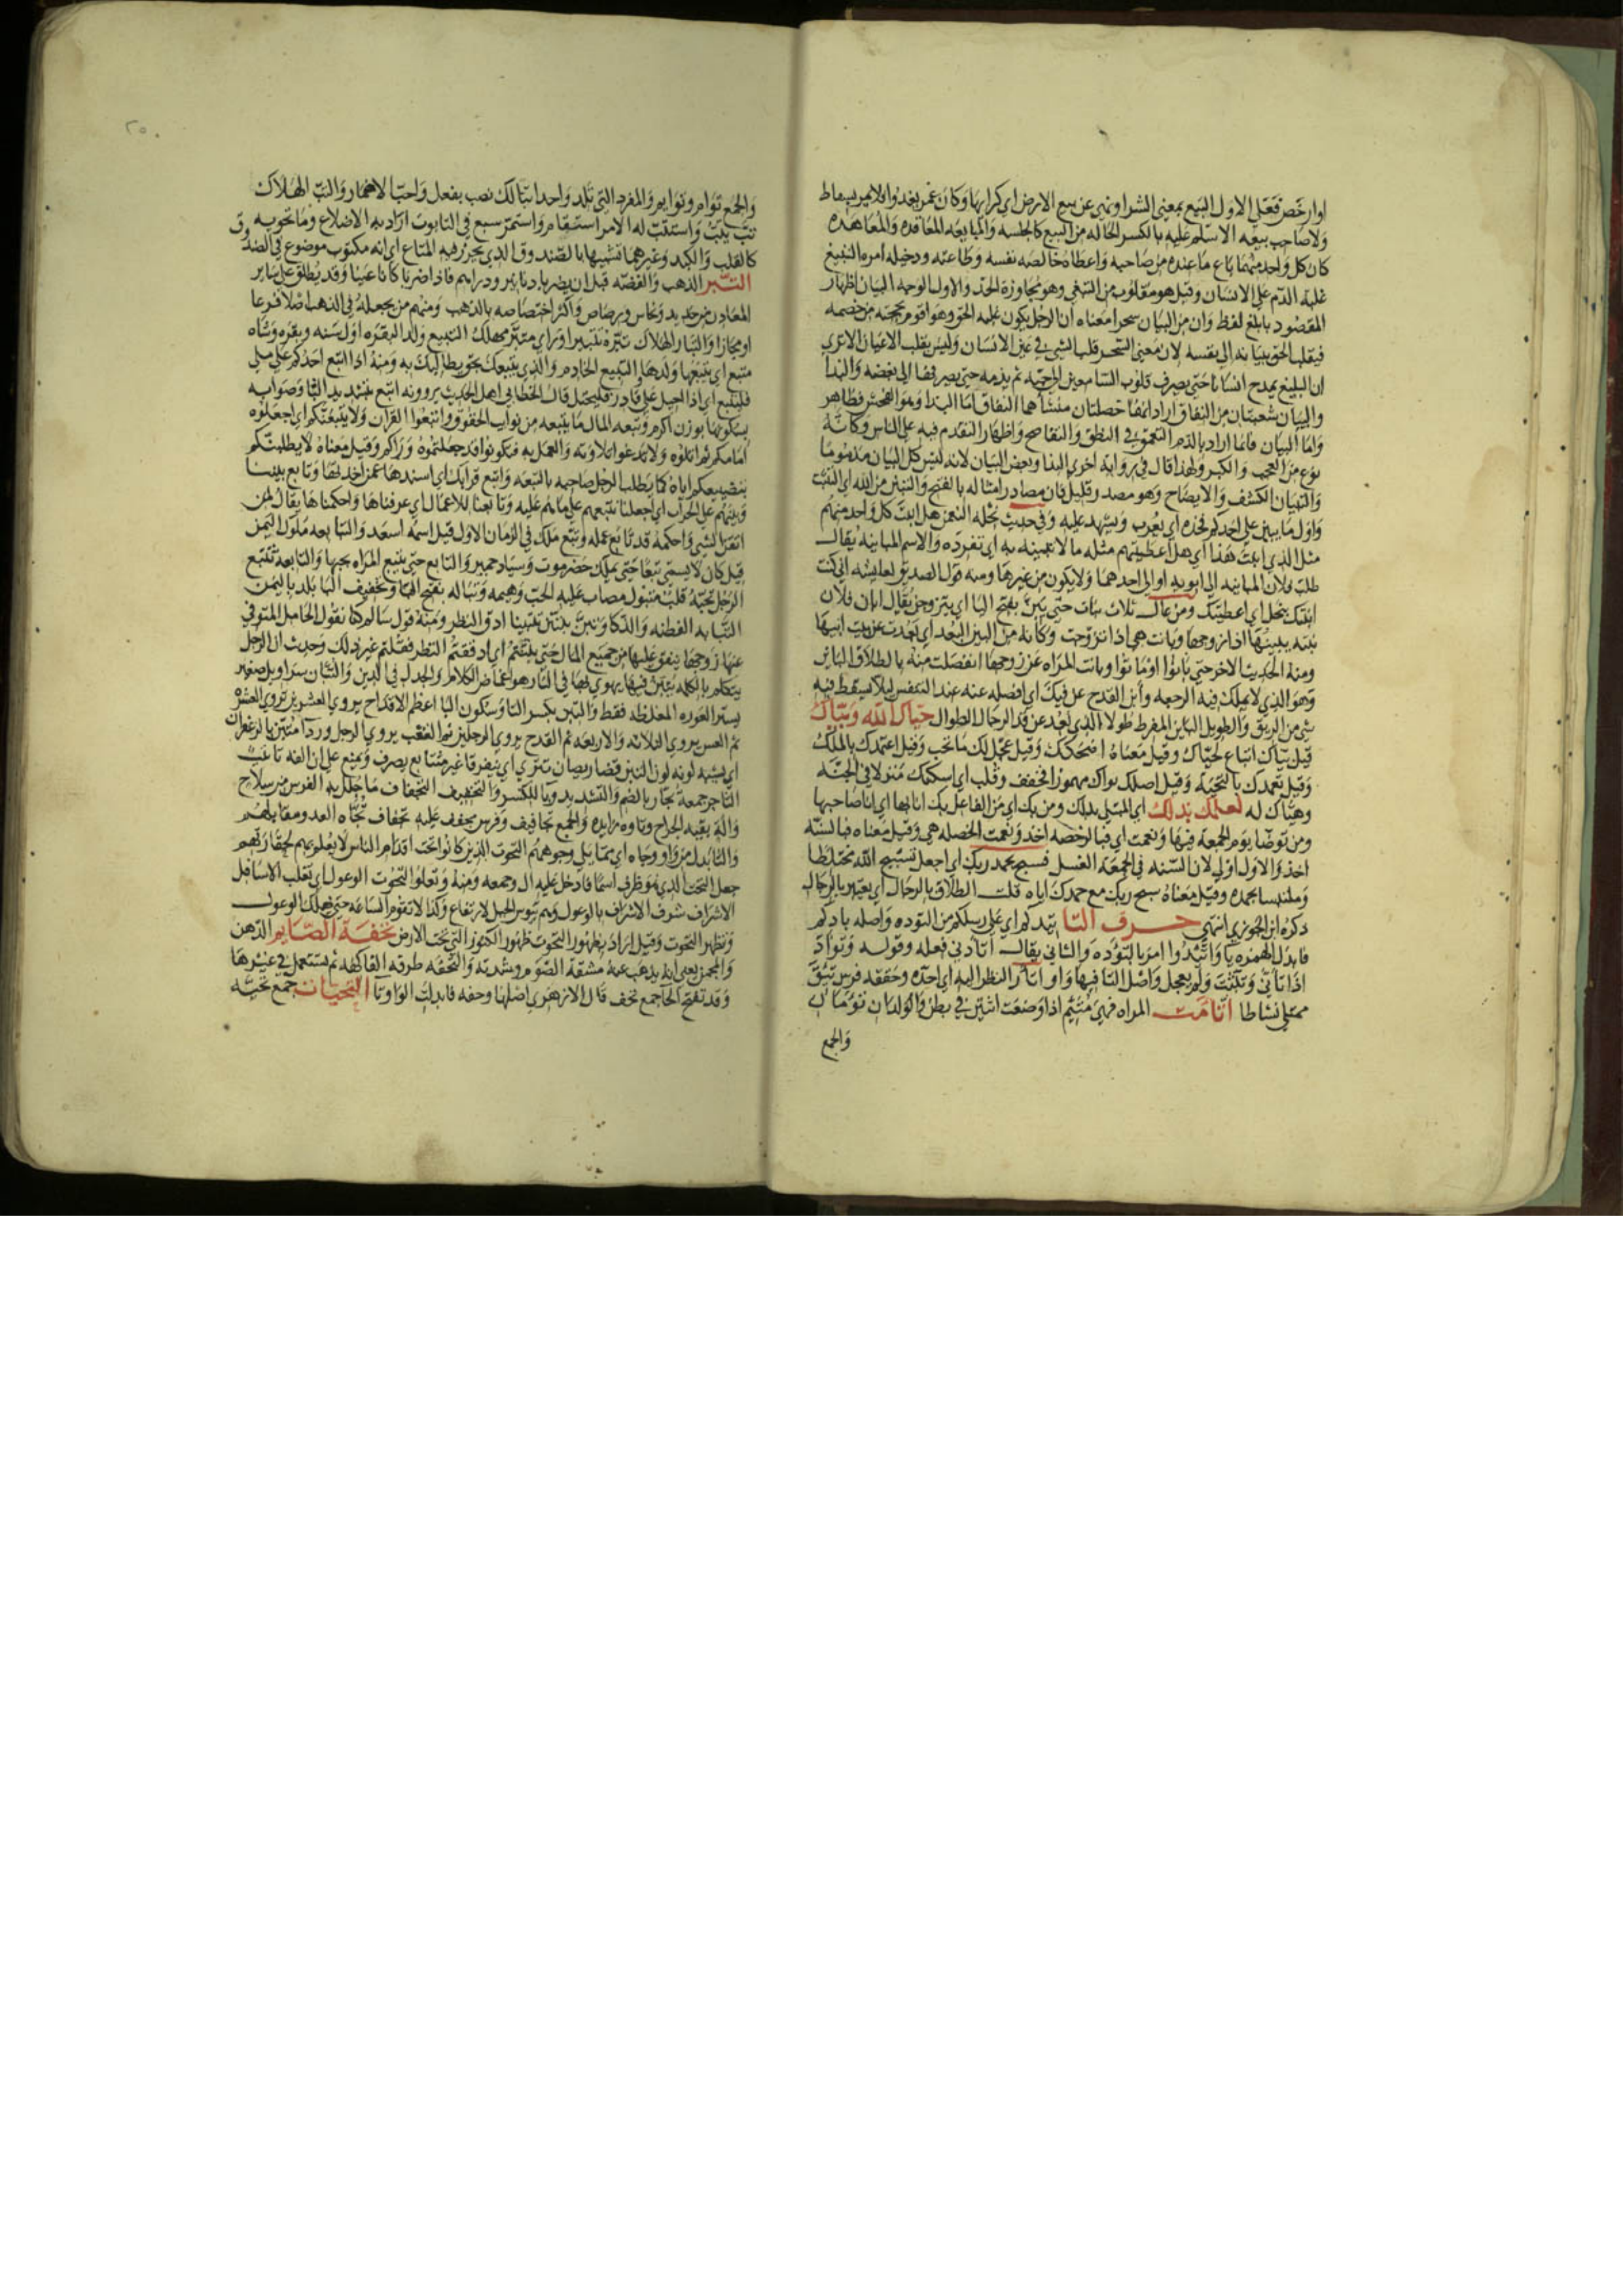 او ارخص فعلى الاول البيع بمعنى الشرا ونهي عن بيع الارض اي كرايها وكان عمر يغدوا فلا يمر بسقاط
ولا صاحب بيعه الا سلم عليه بالكسر الحاله من البيع كالجلسه والمبايعه المعاقده والمعاهده
كان كل واحد منهما باع ما عنده من صاحبه واعطاه خالصه نفسه وطاعته ودخيله امره التبيغ
غلبة الدم على الانسان وقيل هو مقلوب من البغي وهو مجاوزة الحد والاول الوجه البيان اظهار
المقصود بابلغ لفظ وان من البيان سحرا معناه ان الرجل يكون عليه الحق وهو اقوم بحجته من خصمه
فيقلب الحق ببيانه الى نفسه لان معنى السحر قلب الشي في عين الانسان وليس بقلب الاعيان الا ترى
ان البليغ يمدح انسانا حتى يصرف قلوب السامعين الى حبه ثم يذمه حتى يصرفها الى بغضه والبذا
والبيان شعبتان من النفاق اراد انهما خصلتان منشاهما النفاق اما البذا وهو الفحش فظاهر
واما البيان فانما اراد بالذم التعمق في النطق والتفاصح واظهار التقدم فيه على الناس وكانه
نوع من العجب والكبر ولهذا قال في رواية اخرى البذا وبعض البيان لانه ليس كل البيان مذموما
والتبيان الكشف والايضاح وهو مصدر قليل فان مصادر امثاله بالفتح والتبين من الله اي التثبت
واول ما يبين على احدكم فخذه اي يعرب ويشهد عليه وفي حديث نحله النعمن هل ابنت كل واحد منهم
مثل الذي ابنت هذا اي هل اعطيتهم مثله مالا تبينه به اي تفرده والاسم البائنه يقال
طلب فلان البائنه الى ابويه او الى احدهما ولا يكون من غيرهما ومنه قول الصديق لعايشه اني كنت
ابنتك بنحل اي اعطيتك ومن عال ثلاث بنات حتى يبن بفتح اليا اي يتزوجن يقال ابان فلان
بنته يبينها اذا زوجها وبانت هي اذا تزوجت وكانه من البين البعد اي بعدت عن بيت ابيها
ومنه الحديث الاخر حتى بانوا او ماتوا وبانت المراه عن زوجها انفصلت منه بالطلاق الباين
وهو الذي لا يملك فيه الرجعه وابن القدح عن فيك اي افصله عنه عند التنفس ليلا يسقط فيه
شي من الريق والطويل الباين المفرط طولا الذي بعد عن قد الرجال الطوال حياك الله وبياك
قيل بياك اتباع لحياك وقيل معناه اضحكك وقيل عجل لك ما تحب وقيل اعتمدك بالملك
وقيل تعمدك بالتحيه وقيل اصلك بواك مهموزا فخفف وقلب اي اسكنك منزلا في الجنه
وهياك له لعلك بذلك اي المبتلى بذلك ومن بك اي من الفاعل بك انا بها اي انا صاحبها
ومن توضا يوم الجمعه فبها ونعمت اي فبالرخصه اخذ ونعمت الخصله هي وقيل معناه فبالسنه
اخذ والاول اولى لان السنه في الجمعه الغسل فسبح بحمد ربك اي اجعل تسبيح الله مختلطا
وملتبسا بحمده وقيل معناه سبح ربك مع حمدك اياه قلت الطلاق بالرجال اي يعتبر بالرجال
ذكره ابن الجوزي انتهى حرف التا تيدكم اي على رسلكم من التوده واصله بادكم
فابدل الهمزه يا واتئدوا امر بالتؤده والثاني يقال اتاد في فعله وقوله وتواد
اذا تانى وتثبت ولم يعجل واصل التا فيها واو اتار النظر اليه اي احده وحققه فرس تئق
ممتلى نشاطا اتامت المراه فهي متئم اذا وضعت اثنين في بطن والولدان توءمان
والجمع
٢٥٠
والجمع توام وتوايم والمفرد التي تلد واحدا تبا لك نصب بفعل واجب الاضمار والتب الهلاك
تب يتب واستتب له الامر استقام واستمر سبع في التابوت اراد به الاضلاع وما تحويه
كالقلب والكبد وغيرهما تشبيها بالصندوق الذي يحرز فيه المتاع اي انه مكتوب موضوع في الصندوق
التبر الذهب والفضه قبل ان يضربا دنانير ودراهم فاذا ضربا كانا عينا وقد يطلق على ساير
المعادن من حديد ونحاس ورصاص واكثر اختصاصه بالذهب ومنهم من يجعله في الذهب اصلا فرعا
او مجازا والتبار الهلاك تبره تتبيرا وراي متبر مهلك التبيع ولد البقره اول سنه وبقره وشاه
متبع اي يتبعها ولدها والتبيع الخادم والذي يتبعك بحق يطالبك به ومنه اذا اتبع احدكم على ملي
فليتبع اي اذا احيل على قادر فليحتل قال الخطابي اهل الحديث يروونه اتبع بتشديد التا وصوابه
بسكونها بوزن اكرم وتبعه المال ما يتبعه من نوايب الحقوق واتبعوا القران ولا يتبعنكم اي اجعلوه
امامكم ثم اتلوه ولا تدعوا تلاوته والعمل به فتكونوا قد جعلتموه وراكم وقيل معناه لا يطلبنكم
بتضييعكم اياه كما يطلب الرجل صاحبه بالتبعه واتبع قرانك اي اسندها عمن اخذتها وتابع بيننا
وبينهم على الخيرات اي اجعلنا نتبعهم على ما هم عليه وتابعنا الاعمال اي عرفناها واحكمناها يقال لمن
اتقن الشي واحكمه قد تابع عمله وتبع ملك في الزمان الاول قيل اسمه اسعد والتبابعه ملوك اليمن
قيل كان لا يسمى تبعا حتى يملك حضرموت وسبا وحمير والتابع جني يتبع المراه يحبها والتابعه تتبع
الرجل تحبه قلب متبول مصاب عليه الحب وهيمه وتباله بفتح التا وتخفيف البا بلد باليمن
التبانه الفطنه والذكا وتبن يتبن تتبينا ادق النظر ومنه قول سالم كنا نقول الحامل المتوفى
عنها زوجها ينفق عليها من جميع المال حتى تبنتم اي ادققتم النظر فقلتم غير ذلك وحديث ان الرجل
ليتكلم بالكلمه يتبن فيها يهوي بها في النار هو اغماض الكلام والجدل في الدين والتبان سراويل صغير
يستر العوره المغلظه فقط والتبن بكسر التا وسكون البا اعظم الاقداح يروي العشرين
ثم العس يروي الثلاثه والاربعه ثم القدح يروي الرجلين ثم القعب يروي الرجل وردا متبن بالزعفران
اي يشبه لونه لون التبن قضا رمضان تترى اي متفرقا غير متتابع يصرف ويمنع على ان الفه تانيث
التاجر جمعه تجار بالضم والتشديد وبالكسر والتخفيف التجفاف ما جلل به الفرس من سلاح
والة يقيه الجراح وتاوه زايده والجمع تجافيف وفرس مجفف عليه تجفاف تجاه العدو مقابلهم
والتا بدل من واو وجاه اي مما يلي وجوههم التحوت الذين كانوا تحت اقدام الناس لا يعلم بهم لحقارتهم
جعل التحت الذي هو ظرف اسما فادخل عليه ال وجمعه ومنه وتعلوا التحوت الوعول اي تغلب الاسافل
الاشراف شرف الاشراف بالوعول وهم تيوس الجبل لارتفاع وكذا لا تقوم الساعه حتى تهلك الوعول
وتظهر التحوت وقيل اراد بظهور التحوت ظهور الكنوز التي تحت الارض تحفة الصايم الدهن
والمجمر يعني انه يذهب عنه مشقة الصوم وشدته والتحفه طرفه الفاكهه ثم تستعمل في غيرها
وقد تفتح الحا جمع تحف قال الازهري اصلها وحفه فابدلت الواو تا التحيات جمع تحيه